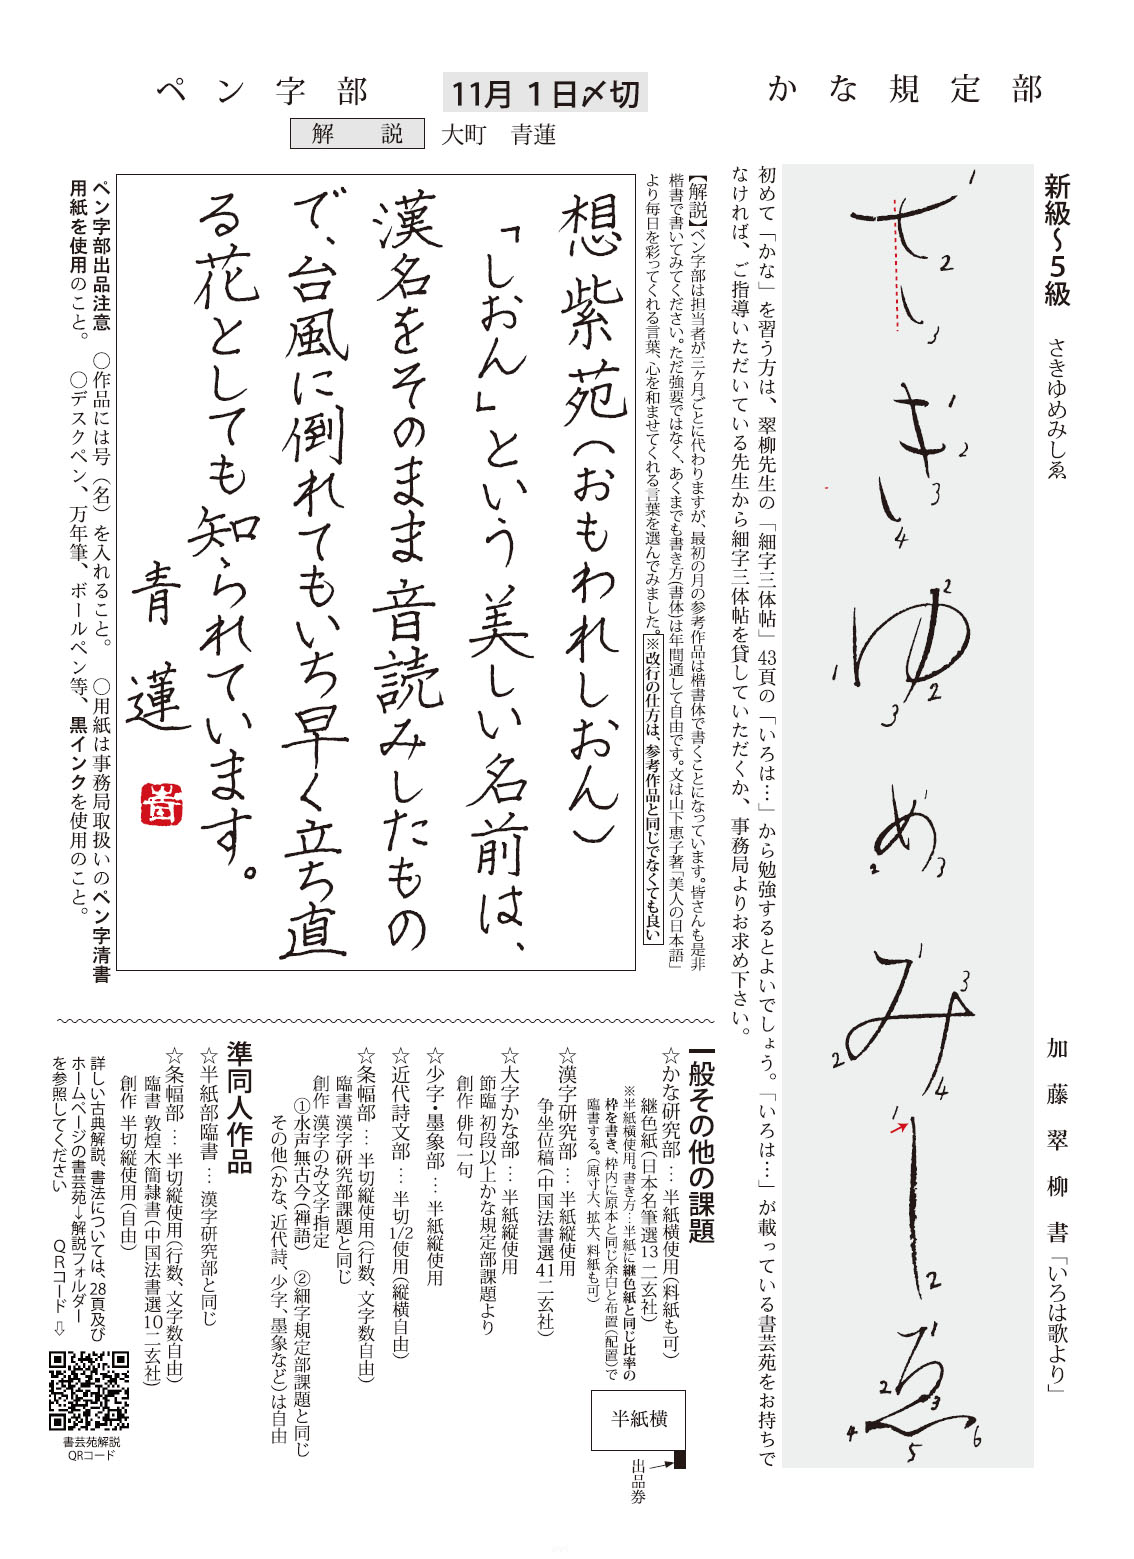 かな規定部
11月1日〆切
ペン字部
解説 大町 青蓮
新級〜5級 さきゆめみしゑ
加藤翠柳書「いろは歌より」
さきゆめみしゑ
初めて「かな」を習う方は、翠柳先生の「細字三体帖」43頁の「いろは…」から勉強するとよいでしょう。「いろは…」が載っている書芸苑をお持ちで
なければ、ご指導いただいている先生から細字三体帖を貸していただくか、事務局よりお求め下さい。
【解説】ペン字部は担当者が三ヶ月ごとに代わりますが、最初の月の参考作品は楷書体で書くことになっています。皆さんも是非
楷書で書いてみてください。ただ強要ではなく、あくまでも書き方(書体)は年間通して自由です。文は山下恵子著「美人の日本語」
より毎日を彩ってくれる言葉、心を和ませてくれる言葉を選んでみました。※改行の仕方は、参考作品と同じでなくても良い
想紫苑(おもわれしおん)
「しおん」という美しい名前は、
漢名をそのまま音読みしたもの
で、台風に倒れてもいち早く立ち直
る花としても知られています。
青蓮
ペン字部出品注意 ○作品には号(名)を入れること。 ○用紙は事務局取扱いのペン字清書
用紙を使用のこと。 ○デスクペン、万年筆、ボールペン等、黒インクを使用のこと。
一般その他の課題
☆かな研究部 … 半紙横使用(料紙も可)
継色紙(日本名筆選13 二玄社)
※半紙横使用。書き方…半紙に継色紙と同じ比率の
枠を書き、枠内に原本と同じ余白と布置(配置)で
臨書する。(原寸大、拡大、料紙も可)
半紙横
出品券
☆漢字研究部 … 半紙縦使用
争坐位稿(中国法書選41 二玄社)
☆大字かな部 … 半紙縦使用
節臨 初段以上かな規定部課題より
創作 俳句一句
☆少字・墨象部 … 半紙縦使用
☆近代詩文部 … 半切1/2使用(縦横自由)
☆条幅部 … 半切縦使用(行数、文字数自由)
臨書 漢字研究部課題と同じ
創作 漢字のみ文字指定
①水声無古今(禅語) ②細字規定部課題と同じ
その他(かな、近代詩、少字、墨象など)は自由
準同人作品
☆半紙部臨書 … 漢字研究部と同じ
☆条幅部 … 半切縦使用(行数、文字数自由)
臨書 敦煌木簡隷書(中国法書選10 二玄社)
創作 半切縦使用(自由)
詳しい古典解説、書法については、28頁及び
ホームページの書芸苑→解説フォルダー
を参照してください QRコード⇨
書芸苑解説
QRコード